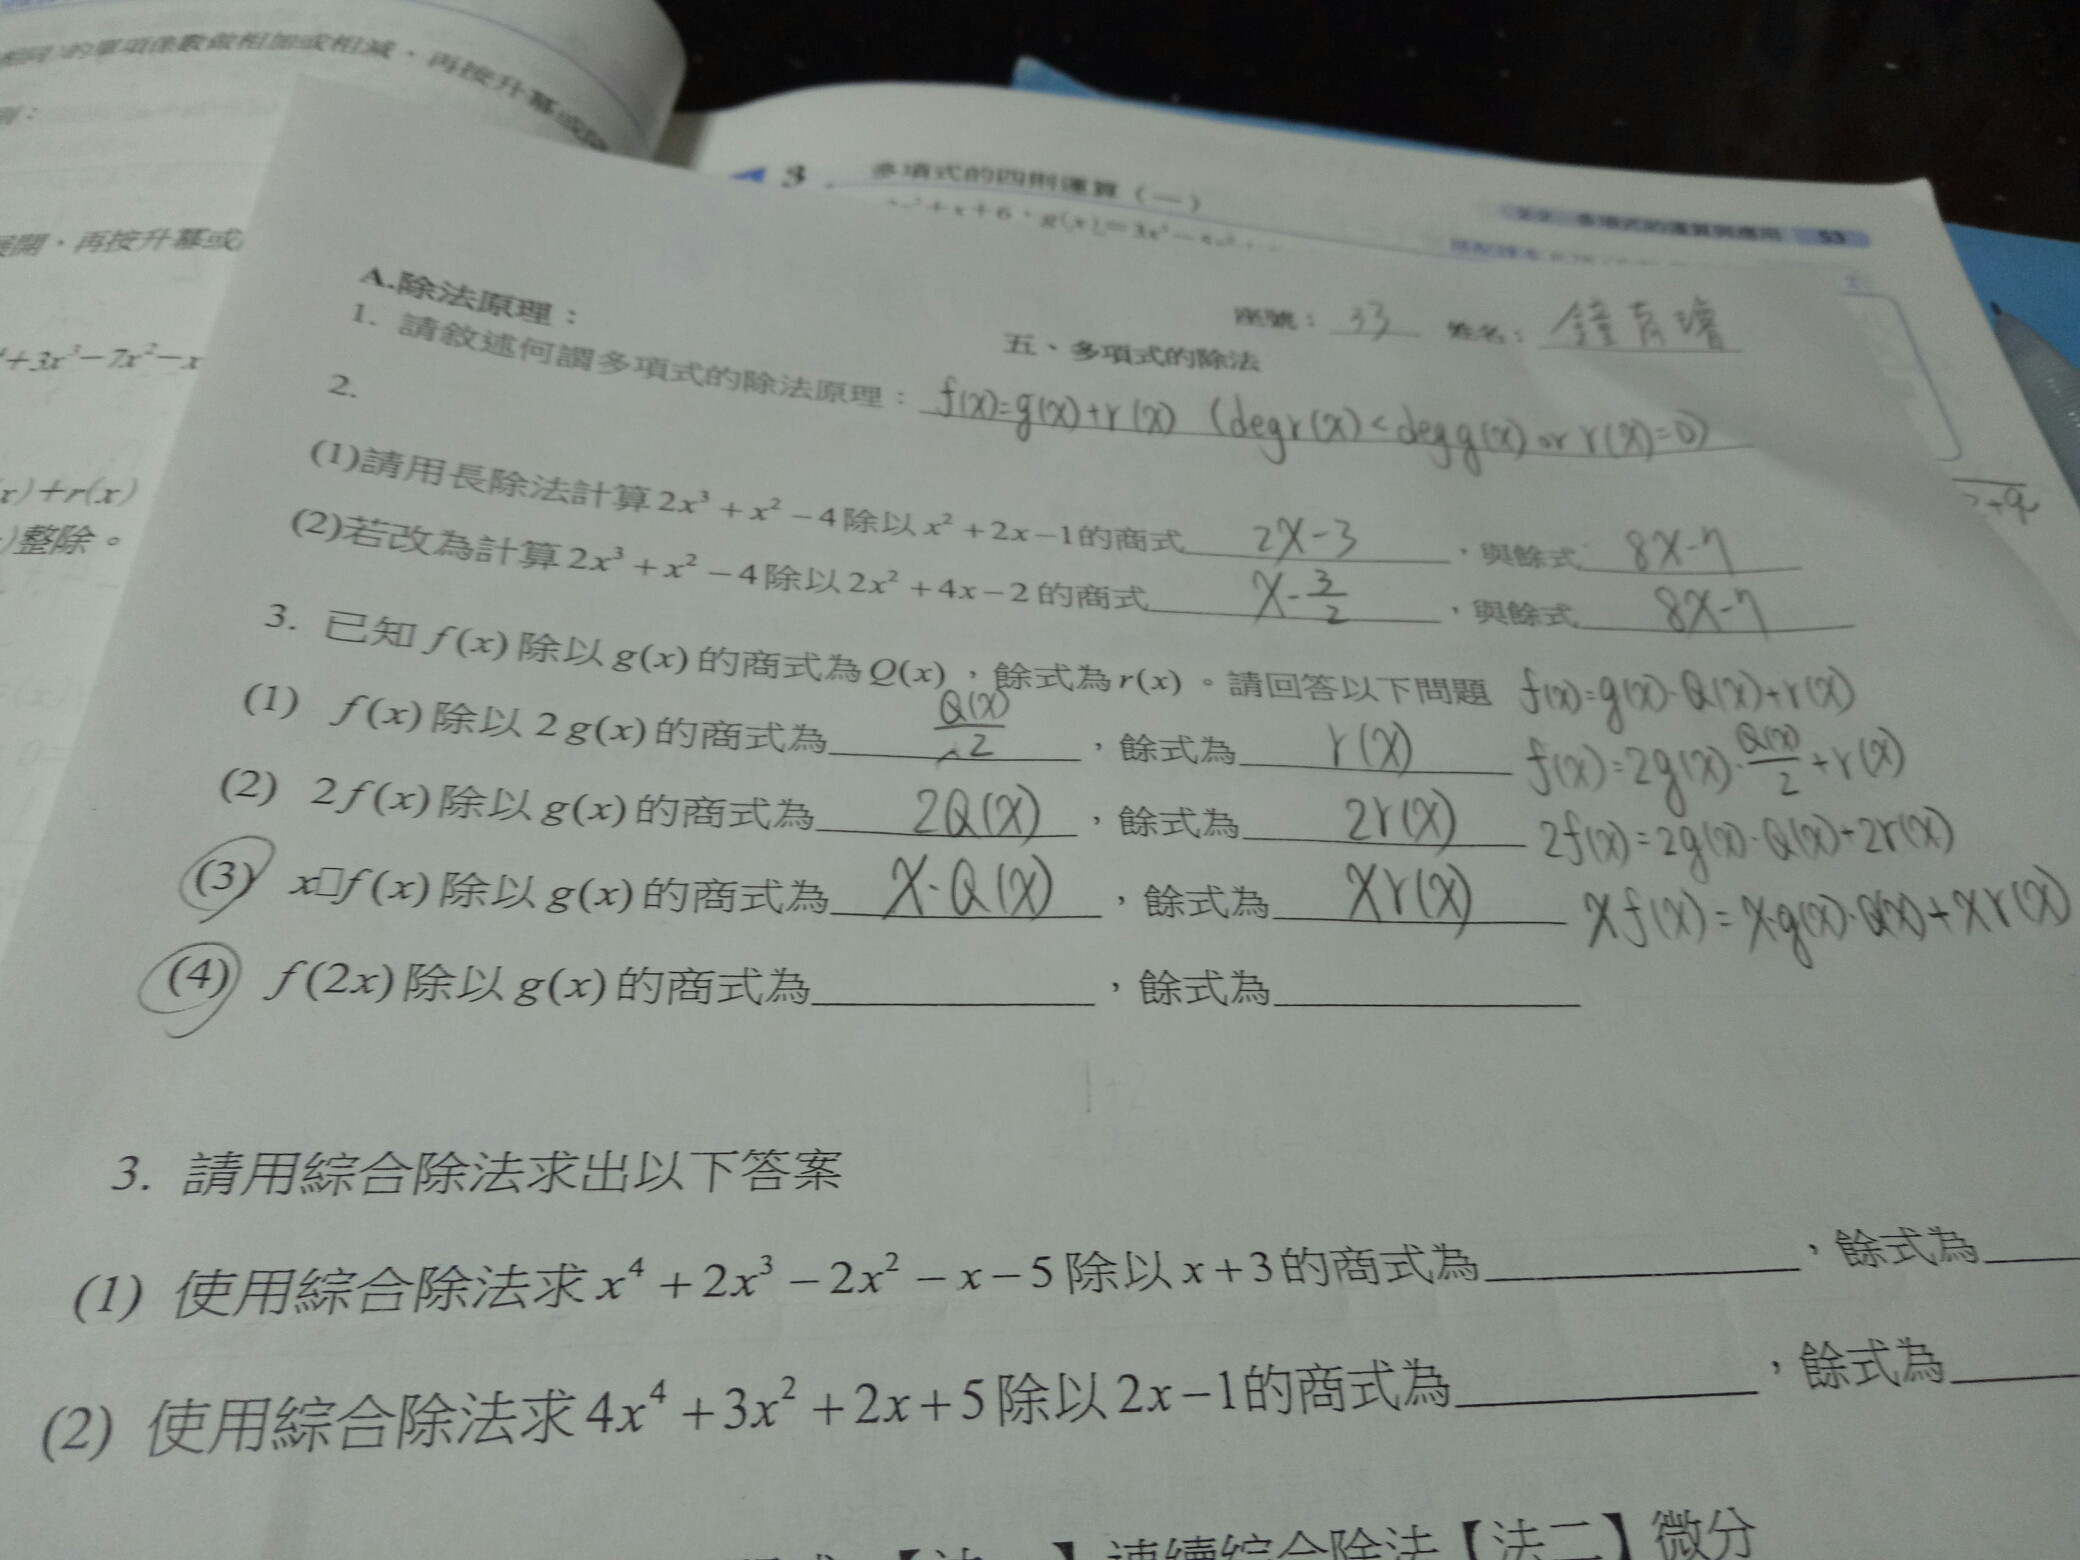 的單項係數做相加或相減，再按升冪或
展開，再按升冪或
+3x³－7x²－x
x)＋r(x)
)整除。
3 多項式的四則運算（一）
53
+x+6，g(x)=3x
A.除法原理：
座號：33 姓名：
五、多項式的除法
1. 請敘述何謂多項式的除法原理：f(x)=g(x)+r(x) (degr(x)<degg(x) or r(x)=0)
2.
(1)請用長除法計算2x³+x²－4除以x²+2x－1的商式 2x-3 ，與餘式 8x-7
(2)若改為計算2x³+x²－4除以2x²+4x－2的商式 x-3/2 ，與餘式 8x-7
3. 已知f(x)除以g(x)的商式為Q(x)，餘式為r(x)。請回答以下問題 f(x)=g(x)·Q(x)+r(x)
(1) f(x)除以2g(x)的商式為 Q(x)/2 ，餘式為 r(x) f(x)=2g(x)·Q(x)/2+r(x)
(2) 2f(x)除以g(x)的商式為 2Q(x) ，餘式為 2r(x) 2f(x)=2g(x)·Q(x)+2r(x)
(3) x□f(x)除以g(x)的商式為 x·Q(x) ，餘式為 xr(x) xf(x)=x·g(x)·Q(x)+xr(x)
(4) f(2x)除以g(x)的商式為____，餘式為____
3. 請用綜合除法求出以下答案
(1) 使用綜合除法求x⁴+2x³－2x²－x－5除以x+3的商式為____，餘式為____
(2) 使用綜合除法求4x⁴+3x²+2x+5除以2x－1的商式為____，餘式為____
連續綜合除法【法二】微分